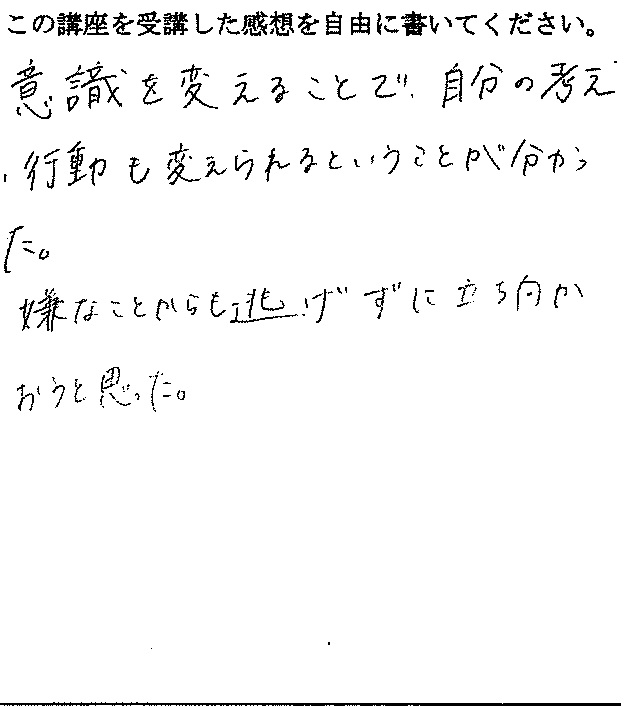 この講座を受講した感想を自由に書いてください。
意識を変えることで、自分の考え
、行動も変えられるということが分かっ
た。
嫌なことからも逃げずに立ち向か
おうと思った。